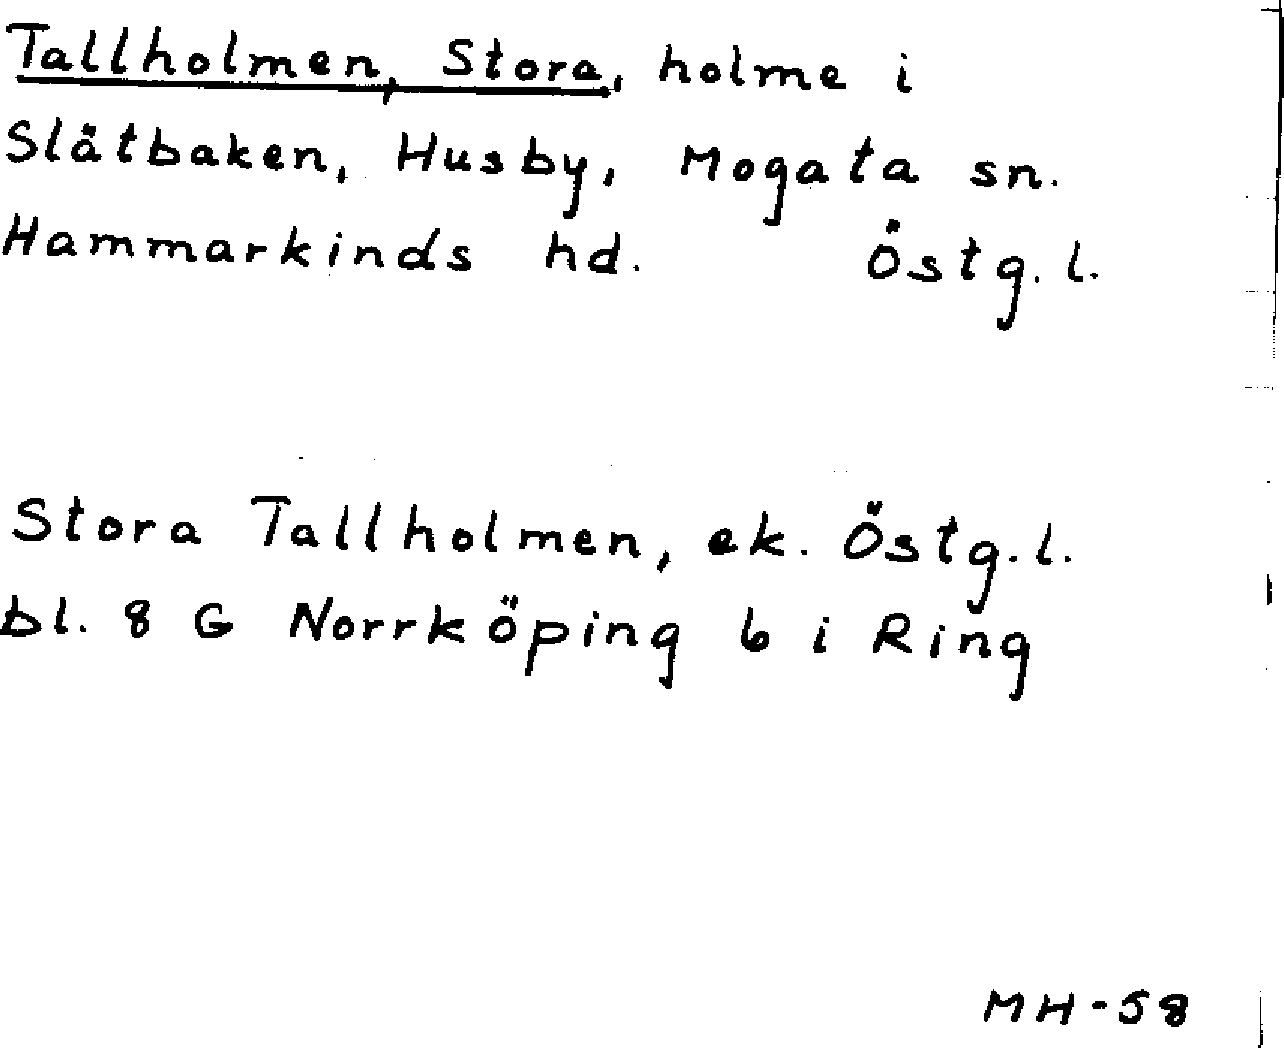 Tallholmen, Stora, holme i
Slätbaken, Husby, Mogata sn.
Hammarkinds hd. Östg. l.
Stora Tallholmen, ek. Östg. l.
bl. 8 G Norrköping 6 i Ring
MH-58